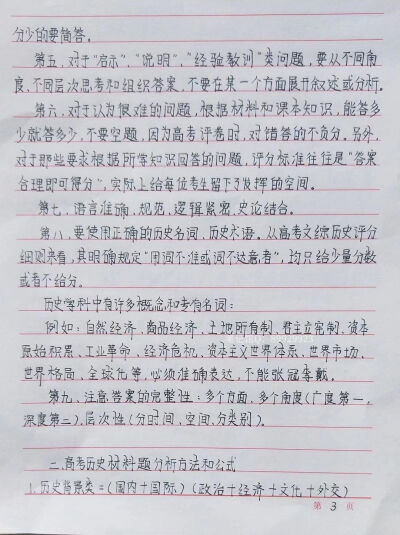 分少的要简答。
第五、对于"启示"、"说明"、"经验教训"类问题，要从不同角
度、不同层次思考和组织答案，不要在某一个方面展开叙述或分析。
第六、对于认为很难的问题，根据材料和课本知识，能答多
少就答多少，不要空题，因为高考评卷时，对错答的不负分。另外，
对于那些要求根据所学知识回答的问题，评分标准往往是"答案
合理即可得分"，实际上给每位考生留下了发挥的空间。
第七、语言准确、规范，逻辑紧密，史论结合。
第八、要使用正确的历史名词、历史术语。从高考文综历史评分
细则来看，其明确规定"用词不准或词不达意者"，均只给少量分数
或者不给分。
历史学科中有许多概念和专有名词：
例如：自然经济、商品经济、土地所有制、君主立宪制、资本
原始积累、工业革命、经济危机、资本主义世界体系、世界市场、
世界格局、全球化等，必须准确表达，不能张冠李戴。
第九、注意答案的完整性：多个方面，多个角度(广度第一，
深度第二)，层次性(分时间、空间、分类别)。
二、高考历史材料题分析方法和公式
1、历史背景类＝(国内＋国际)(政治＋经济＋文化＋外交)
第 3 页